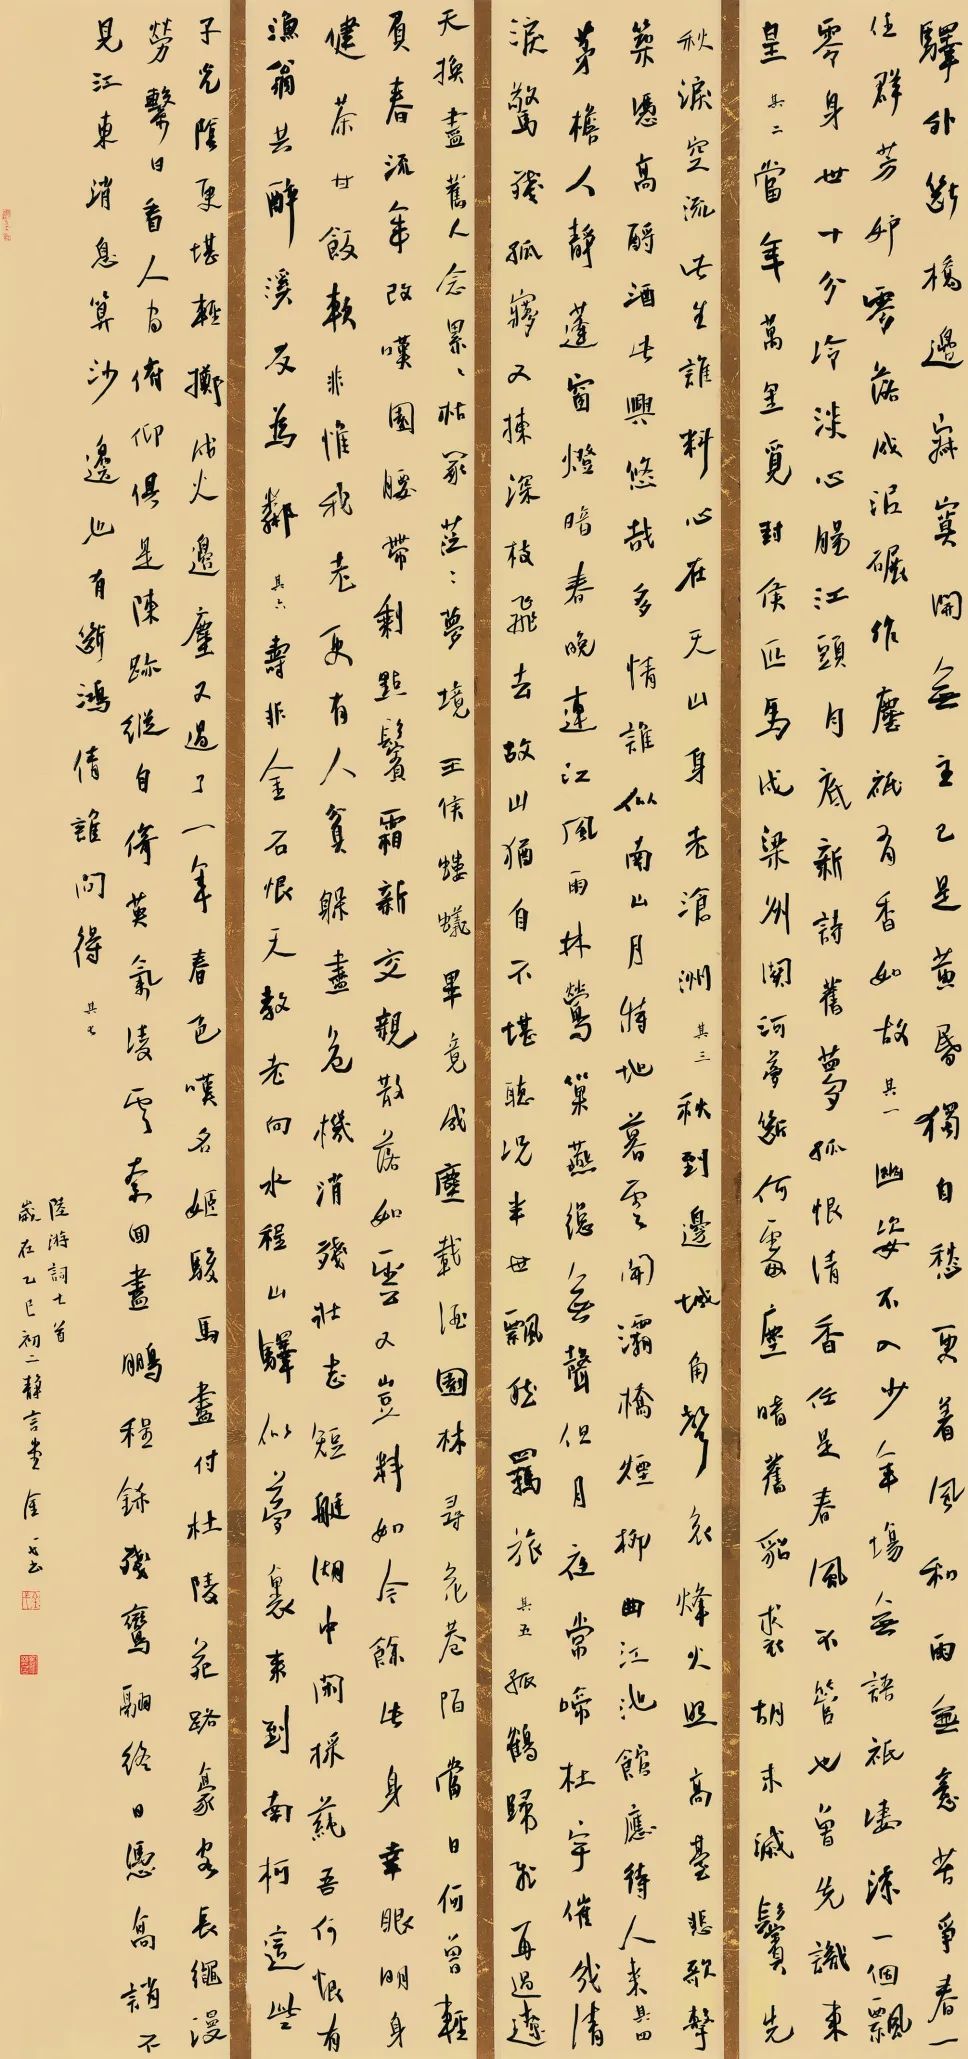 驛外斷橋邊寂寞開無主已是黃昏獨自愁更着風和雨無意苦爭春一
任群芳妒零落成泥碾作塵祇有香如故其一幽姿不入少年場無語祇淒涼一個飄
零身世十分冷淡心腸江頭月底新詩舊夢孤恨清香任是春風不管也曾先識東
皇其二當年萬里覓封侯匹馬戍梁州關河夢斷何處塵暗舊貂裘胡未滅鬢先
秋淚空流此生誰料心在天山身老滄洲其三秋到邊城角聲哀烽火照高臺悲歌擊
築憑高酹酒此興悠哉多情誰似南山月特地暮雲開灞橋煙柳曲江池館應待人來其四
茅檐人靜蓬窗燈暗春晚連江風雨林鶯巢燕總無聲但月夜常啼杜宇催成清
淚驚殘孤夢又揀深枝飛去故山猶自不堪聽況半世飄然羈旅其五孤鶴歸飛再過遼
天換盡舊人念累〻枯冢茫〻夢境王侯螻蟻畢竟成塵載酒園林尋花巷陌當日何曾輕
負春流年改嘆圍腰帶剩點鬢霜新交親散落如雲又豈料如今餘此身幸眼明身
健茶甘飯軟非惟我老更有人貧躲盡危機消殘壯志短艇湖中閑採蓴吾何恨有
漁翁共醉溪友為鄰其六壽非金石恨天教老向水程山驛似夢裏來到南柯這些
子光陰更堪輕擲戍火邊塵又過了一年春色嘆名姬駿馬盡付杜陵苑路豪客長繩漫
勞繫日看人間俯仰俱是陳跡縱自倚英氣凌雲奈回盡鵬程鎩殘鸞翮終日憑高誚不
見江東消息算沙邊也有斷鴻倩誰問得其七
陸游詞七首
歲在乙巳初二靜言堂金